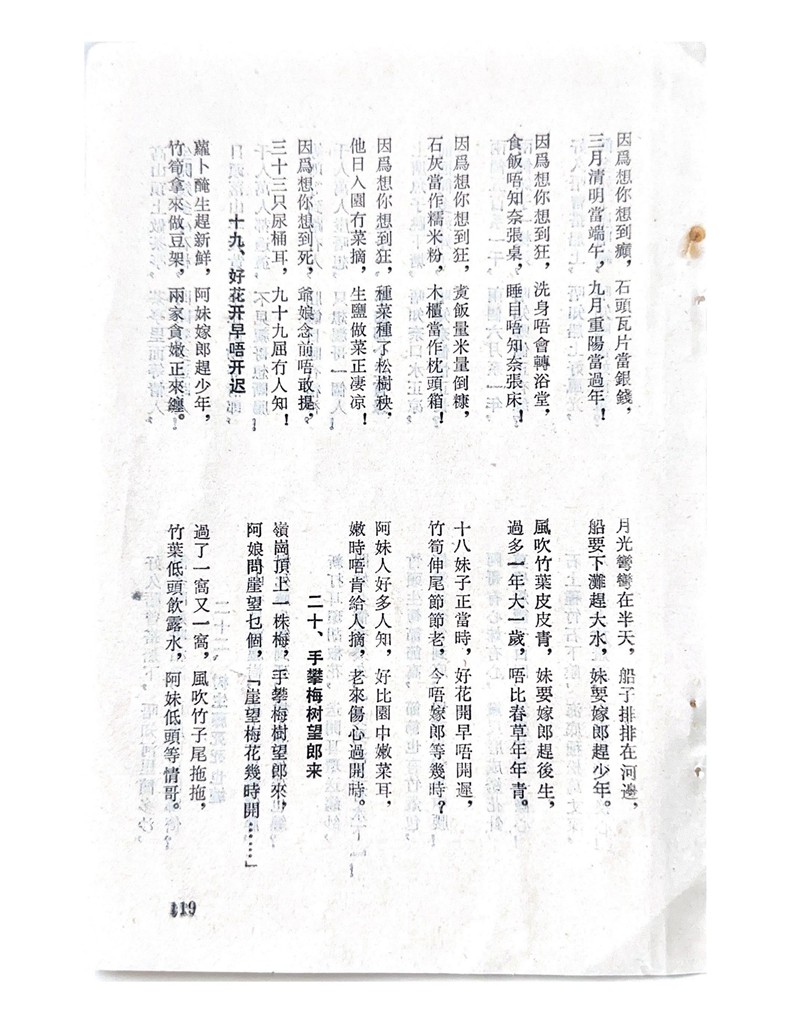 因爲想你想到癲，石頭瓦片當銀錢，
三月清明當端午，九月重陽當過年！
因爲想你想到狂，洗身唔會轉浴堂，
食飯唔知奈張桌，睡目唔知奈張床！
因爲想你想到狂，煑飯量米量倒糠，
石灰當作糯米粉，木櫃當作枕頭箱！
因爲想你想到狂，種菜種了松樹秧，
他日入園冇菜摘，生鹽做菜正凄凉！
因爲想你想到死，爺娘念前唔敢提，
三十三只尿桶耳，九十九屈冇人知！
十九、好花开早唔开迟
蘿卜醃生趕新鮮，阿妹嫁郎趕少年，
竹筍拿來做豆架，兩家食嫩正來纏。
月光彎彎在半天，船子排排在河邊，
船要下灘趕大水，妹要嫁郎趕少年。
風吹竹葉皮皮青，妹要嫁郎趕後生，
過多一年大一歲，唔比春草年年青。
十八妹子正當時，好花開早唔開遲，
竹筍伸尾節節老，今唔嫁郎等幾時？
阿妹人好多人知，好比園中嫩菜耳，
嫩時唔肯給人摘，老來傷心過開時。
二十、手攀梅树望郎来
嶺崗頂上一株梅，手攀梅樹望郎來，
阿娘問崖望乜個，「崖望梅花幾時開……」
過了一窩又一窩，風吹竹子尾拖拖，
竹葉低頭飲露水，阿妹低頭等情哥。
119